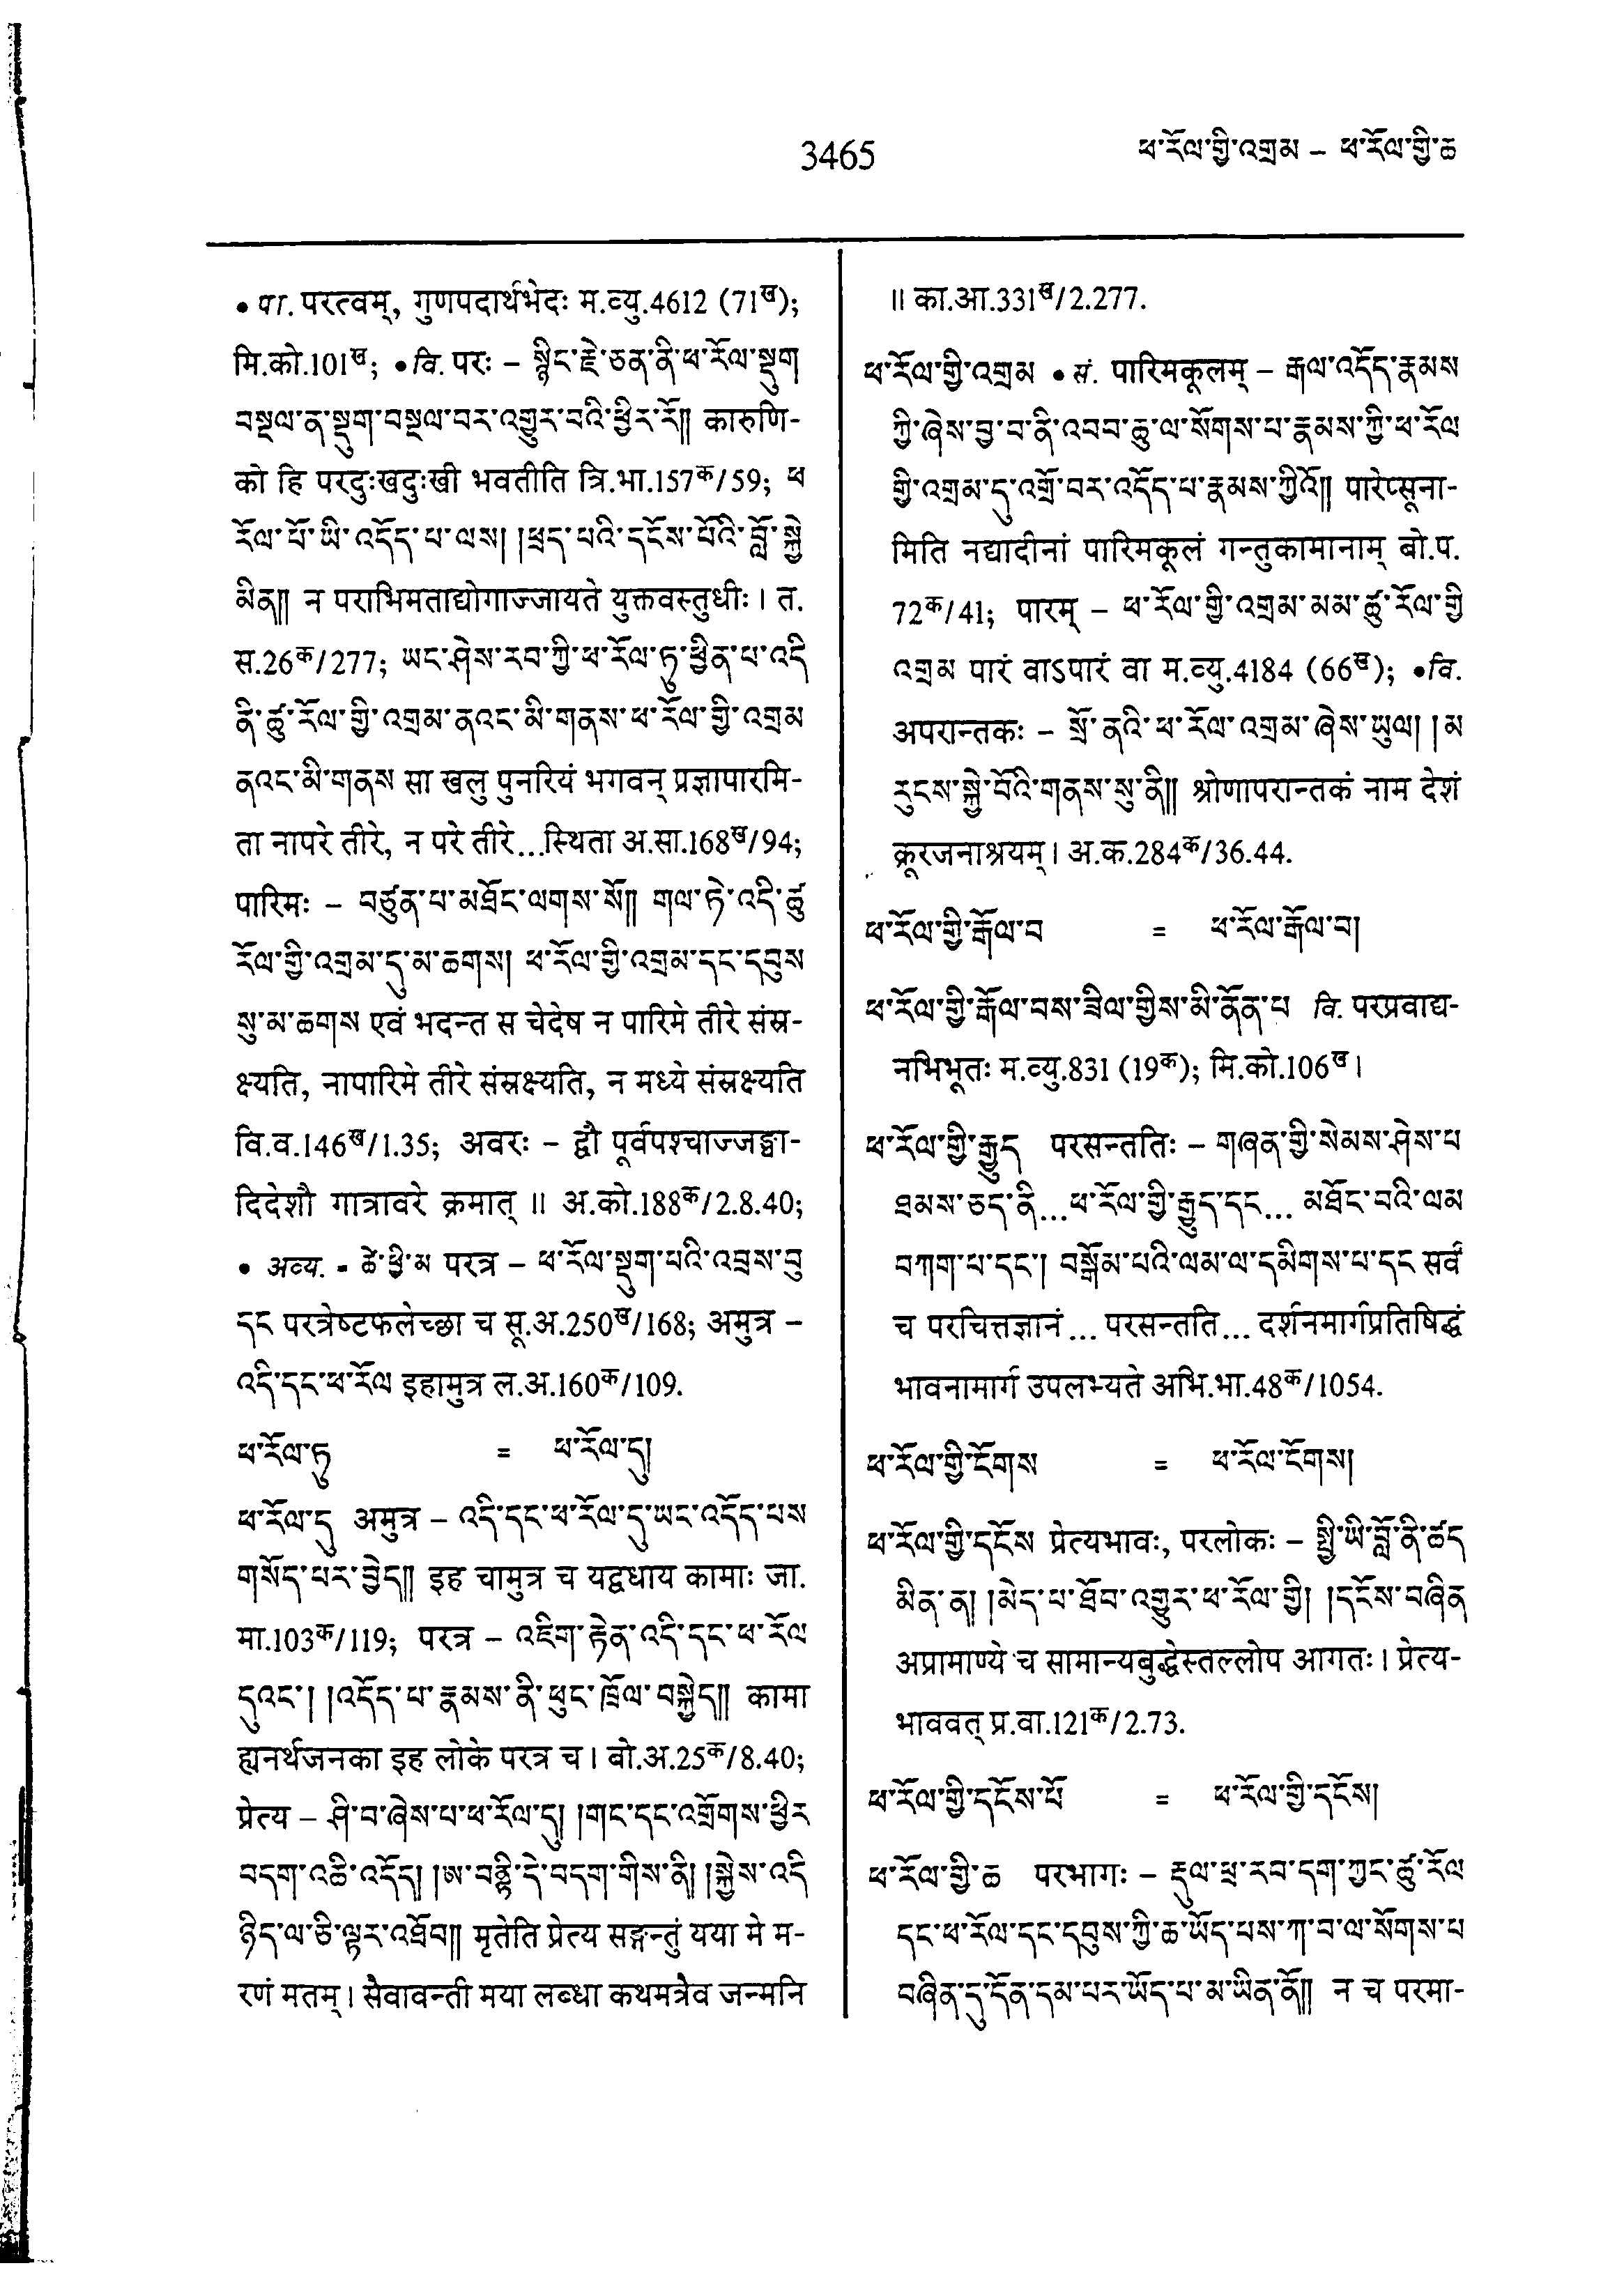 3465
ཕ་རོལ་གྱི་འགྲམ – ཕ་རོལ་གྱི་ཆ
• पा. परत्वम्, गुणपदार्थभेदः म.व्यु.4612 (71ख);
मि.को.101ख; •वि. परः – སྙིང་རྗེ་ཅན་ནི་ཕ་རོལ་སྡུག
བསྔལ་ན་སྡུག་བསྔལ་བར་འགྱུར་བའི་ཕྱིར་རོ།། कारुणि-
को हि परदुःखदुःखी भवतीति त्रि.भा.157क/59; ཕ
རོལ་པོ་ཡི་འདོད་པ་ལས། །ཕྲད་པའི་དངོས་པོའི་བློ་སྐྱེ
མིན།། न पराभिमताद्योगाज्जायते युक्तवस्तुधीः। त.
स.26क/277; ཡང་ཤེས་རབ་ཀྱི་ཕ་རོལ་ཏུ་ཕྱིན་པ་འདི
ནི་ཚུ་རོལ་གྱི་འགྲམ་ནའང་མི་གནས་ཕ་རོལ་གྱི་འགྲམ
ནའང་མི་གནས सा खलु पुनरियं भगवन् प्रज्ञापारमि-
ता नापरे तीरे, न परे तीरे...स्थिता अ.सा.168ख/94;
पारिमः – བཙུན་པ་མཐོང་ལགས་སོ།། གལ་ཏེ་འདི་ཚུ
རོལ་གྱི་འགྲམ་དུ་མ་ཆགས། ཕ་རོལ་གྱི་འགྲམ་དང་དབུས
སུ་མ་ཆགས एवं भदन्त स चेदेष न पारिमे तीरे संस्र-
क्ष्यति, नापारिमे तीरे संस्रक्ष्यति, न मध्ये संस्रक्ष्यति
वि.व.146ख/1.35; अवरः – द्वौ पूर्वपश्चाज्जङ्घा-
दिदेशौ गात्रावरे क्रमात् ॥ अ.को.188क/2.8.40;
• अव्य. ▪ ཚེ་ཕྱི་མ परत्र – ཕ་རོལ་སྡུག་པའི་འབྲས་བུ
དང परत्रेष्टफलेच्छा च सू.अ.250ख/168; अमुत्र –
འདི་དང་ཕ་རོལ इहामुत्र ल.अ.160क/109.
ཕ་རོལ་ཏུ = ཕ་རོལ་དུ།
ཕ་རོལ་དུ अमुत्र – འདི་དང་ཕ་རོལ་དུ་ཡང་འདོད་པས
གསོད་པར་བྱེད།། इह चामुत्र च यद्वधाय कामाः जा.
मा.103क/119; परत्र – འཇིག་རྟེན་འདི་དང་ཕ་རོལ
དུའང་། །འདོད་པ་རྣམས་ནི་ཕུང་ཁྲོལ་བསྐྱེད།། कामा
ह्यनर्थजनका इह लोके परत्र च। बो.अ.25क/8.40;
प्रेत्य – ཤི་བ་ཞེས་པ་ཕ་རོལ་དུ། །གང་དང་འགྲོགས་ཕྱིར
བདག་འཆི་འདོད། །ཨ་བནྟི་དེ་བདག་གིས་ནི། །སྐྱེས་འདི
ཉིད་ལ་ཅི་ལྟར་འཐོབ།། मृतेति प्रेत्य सङ्गन्तुं यया मे म-
रणं मतम्। सैवावन्ती मया लब्धा कथमत्रैव जन्मनि
॥ का.आ.331ख/2.277.
ཕ་རོལ་གྱི་འགྲམ • सं. पारिमकूलम् – རྒལ་འདོད་རྣམས
ཀྱི་ཞེས་བྱ་བ་ནི་འབབ་ཆུ་ལ་སོགས་པ་རྣམས་ཀྱི་ཕ་རོལ
གྱི་འགྲམ་དུ་འགྲོ་བར་འདོད་པ་རྣམས་ཀྱིའོ།། पारेप्सूना-
मिति नद्यादीनां पारिमकूलं गन्तुकामानाम् बो.प.
72क/41; पारम् – ཕ་རོལ་གྱི་འགྲམ་མམ་ཚུ་རོལ་གྱི
འགྲམ पारं वाऽपारं वा म.व्यु.4184 (66ख); •वि.
अपरान्तकः – སྲོ་ནའི་ཕ་རོལ་འགྲམ་ཞེས་ཡུལ། །མ
རུངས་སྐྱེ་བོའི་གནས་སུ་ནི།། श्रोणापरान्तकं नाम देशं
क्रूरजनाश्रयम्। अ.क.284क/36.44.
ཕ་རོལ་གྱི་རྒོལ་བ = ཕ་རོལ་རྒོལ་བ།
ཕ་རོལ་གྱི་རྒོལ་བས་ཟིལ་གྱིས་མི་ནོན་པ वि. परप्रवाद्य-
नभिभूतः म.व्यु.831 (19क); मि.को.106ख।
ཕ་རོལ་གྱི་རྒྱུད परसन्ततिः – གཞན་གྱི་སེམས་ཤེས་པ
ཐམས་ཅད་ནི...ཕ་རོལ་གྱི་རྒྱུད་དང... མཐོང་བའི་ལམ
བཀག་པ་དང་། བསྒོམ་པའི་ལམ་ལ་དམིགས་པ་དང सर्वं
च परचित्तज्ञानं... परसन्तति... दर्शनमार्गप्रतिषिद्धं
भावनामार्ग उपलभ्यते अभि.भा.48क/1054.
ཕ་རོལ་གྱི་ངོགས = ཕ་རོལ་ངོགས།
ཕ་རོལ་གྱི་དངོས प्रेत्यभावः, परलोकः – སྤྱི་ཡི་བློ་ནི་ཚད
མིན་ན། །མེད་པ་ཐོབ་འགྱུར་ཕ་རོལ་གྱི། །དངོས་བཞིན
अप्रामाण्ये च सामान्यबुद्धेस्तल्लोप आगतः। प्रेत्य-
भाववत् प्र.वा.121क/2.73.
ཕ་རོལ་གྱི་དངོས་པོ = ཕ་རོལ་གྱི་དངོས།
ཕ་རོལ་གྱི་ཆ परभागः – རྡུལ་ཕྲ་རབ་དག་ཀྱང་ཚུ་རོལ
དང་ཕ་རོལ་དང་དབུས་ཀྱི་ཆ་ཡོད་པས་ཀ་བ་ལ་སོགས་པ
བཞིན་དུ་དོན་དམ་པར་ཡོད་པ་མ་ཡིན་ནོ།། न च परमा-